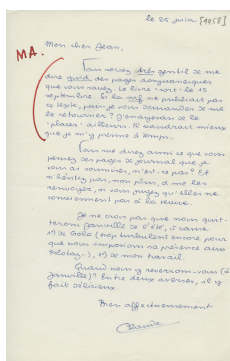 le 25 juin [1958]
MA.
Mon cher Jean,
Vous seriez très gentil de me
dire quid des pages donjuanesques
que vous savez. Le livre sort le 15
septembre. Si la nrf ne publiait pas
ce texte, puis-je vous demander de me
le retourner ? J'envisagerais de le
"placer" ailleurs. Il vaudrait mieux
que je m'y prenne à temps.
Vous me direz aussi ce que vous
pensez des pages de journal que je
vous ai soumises, n'est-ce pas ? Et
n'hésitez pas, non plus, à me les
renvoyer, si vous jugez qu'elles ne
conviennent pas à la revue.
Je ne crois pas que nous quit-
terons Janville de l'été, à cause
1º) de Golo (trop turbulent encore pour
que nous imposions sa présence aux
), 2º) de mon travail.
Quand nous y reverrons-vous (à
Janville) ? Entre deux averses, il y
fait délicieux.
Bien affectueusement
Claude